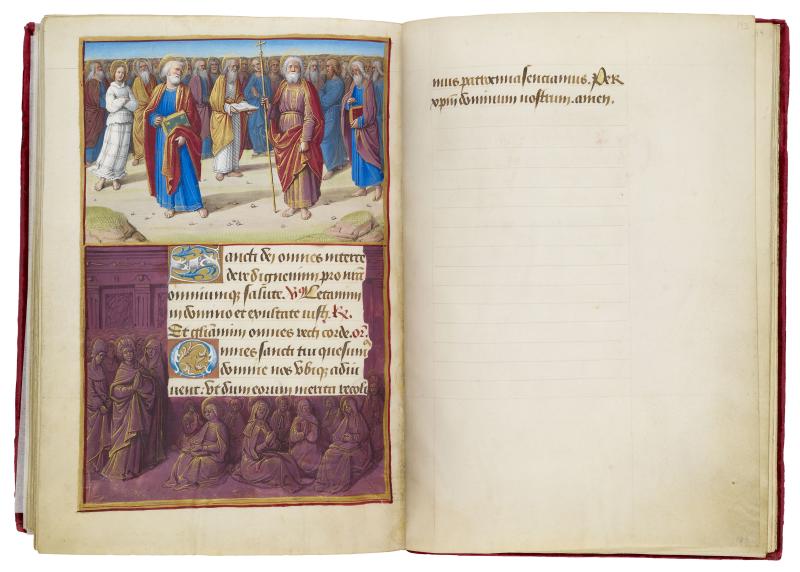 Sancti dei omnes interce
dere dignemini pro nr̄a
omniumq; salute. V̄s Letamini
in domino et exultate iusti. R̄.
Et gl̄iamini omnes recti corde. or̄.
Omnes sancti tui quesum⁹
domine nos vbiq; adiu
uent. vt dum eorum merita recoli
mus patrocinia senciamus. Per
xp̄m dominum nostrum. amen.